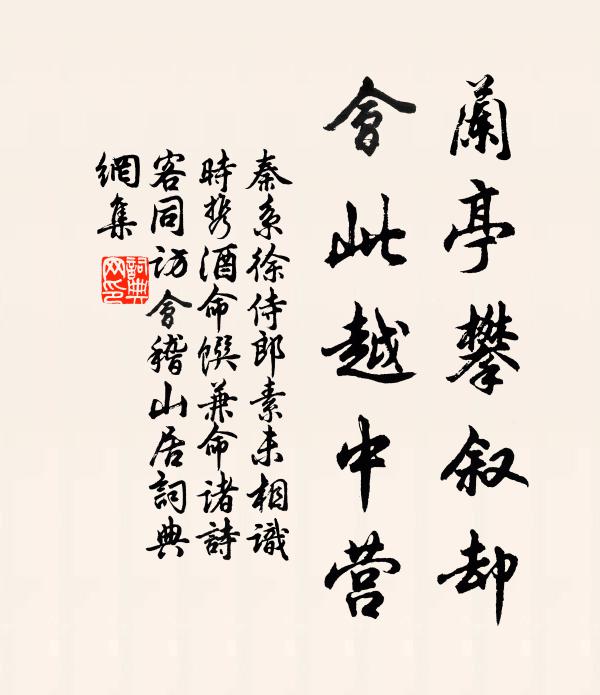 蘭亭攀叙却
會此越中营
秦系徐侍郎素未相識
時携酒命饌兼命诸詩
客同访會稽山居詞典
網集
詞典
网印